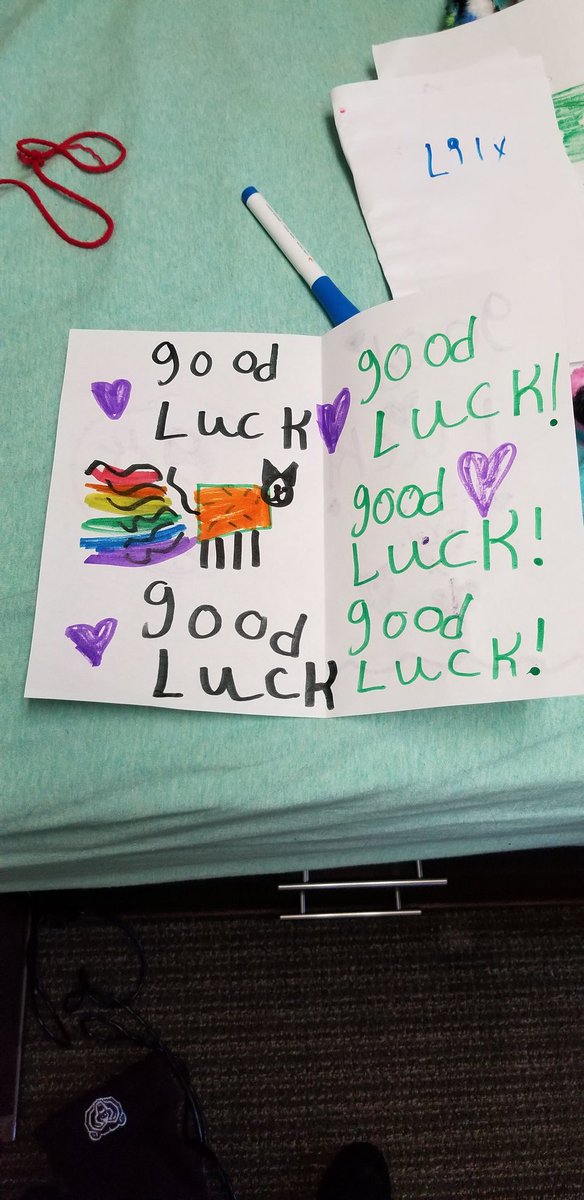 good
Luck
good
Luck
good
Luck!
good
Luck!
good
Luck!
L91x